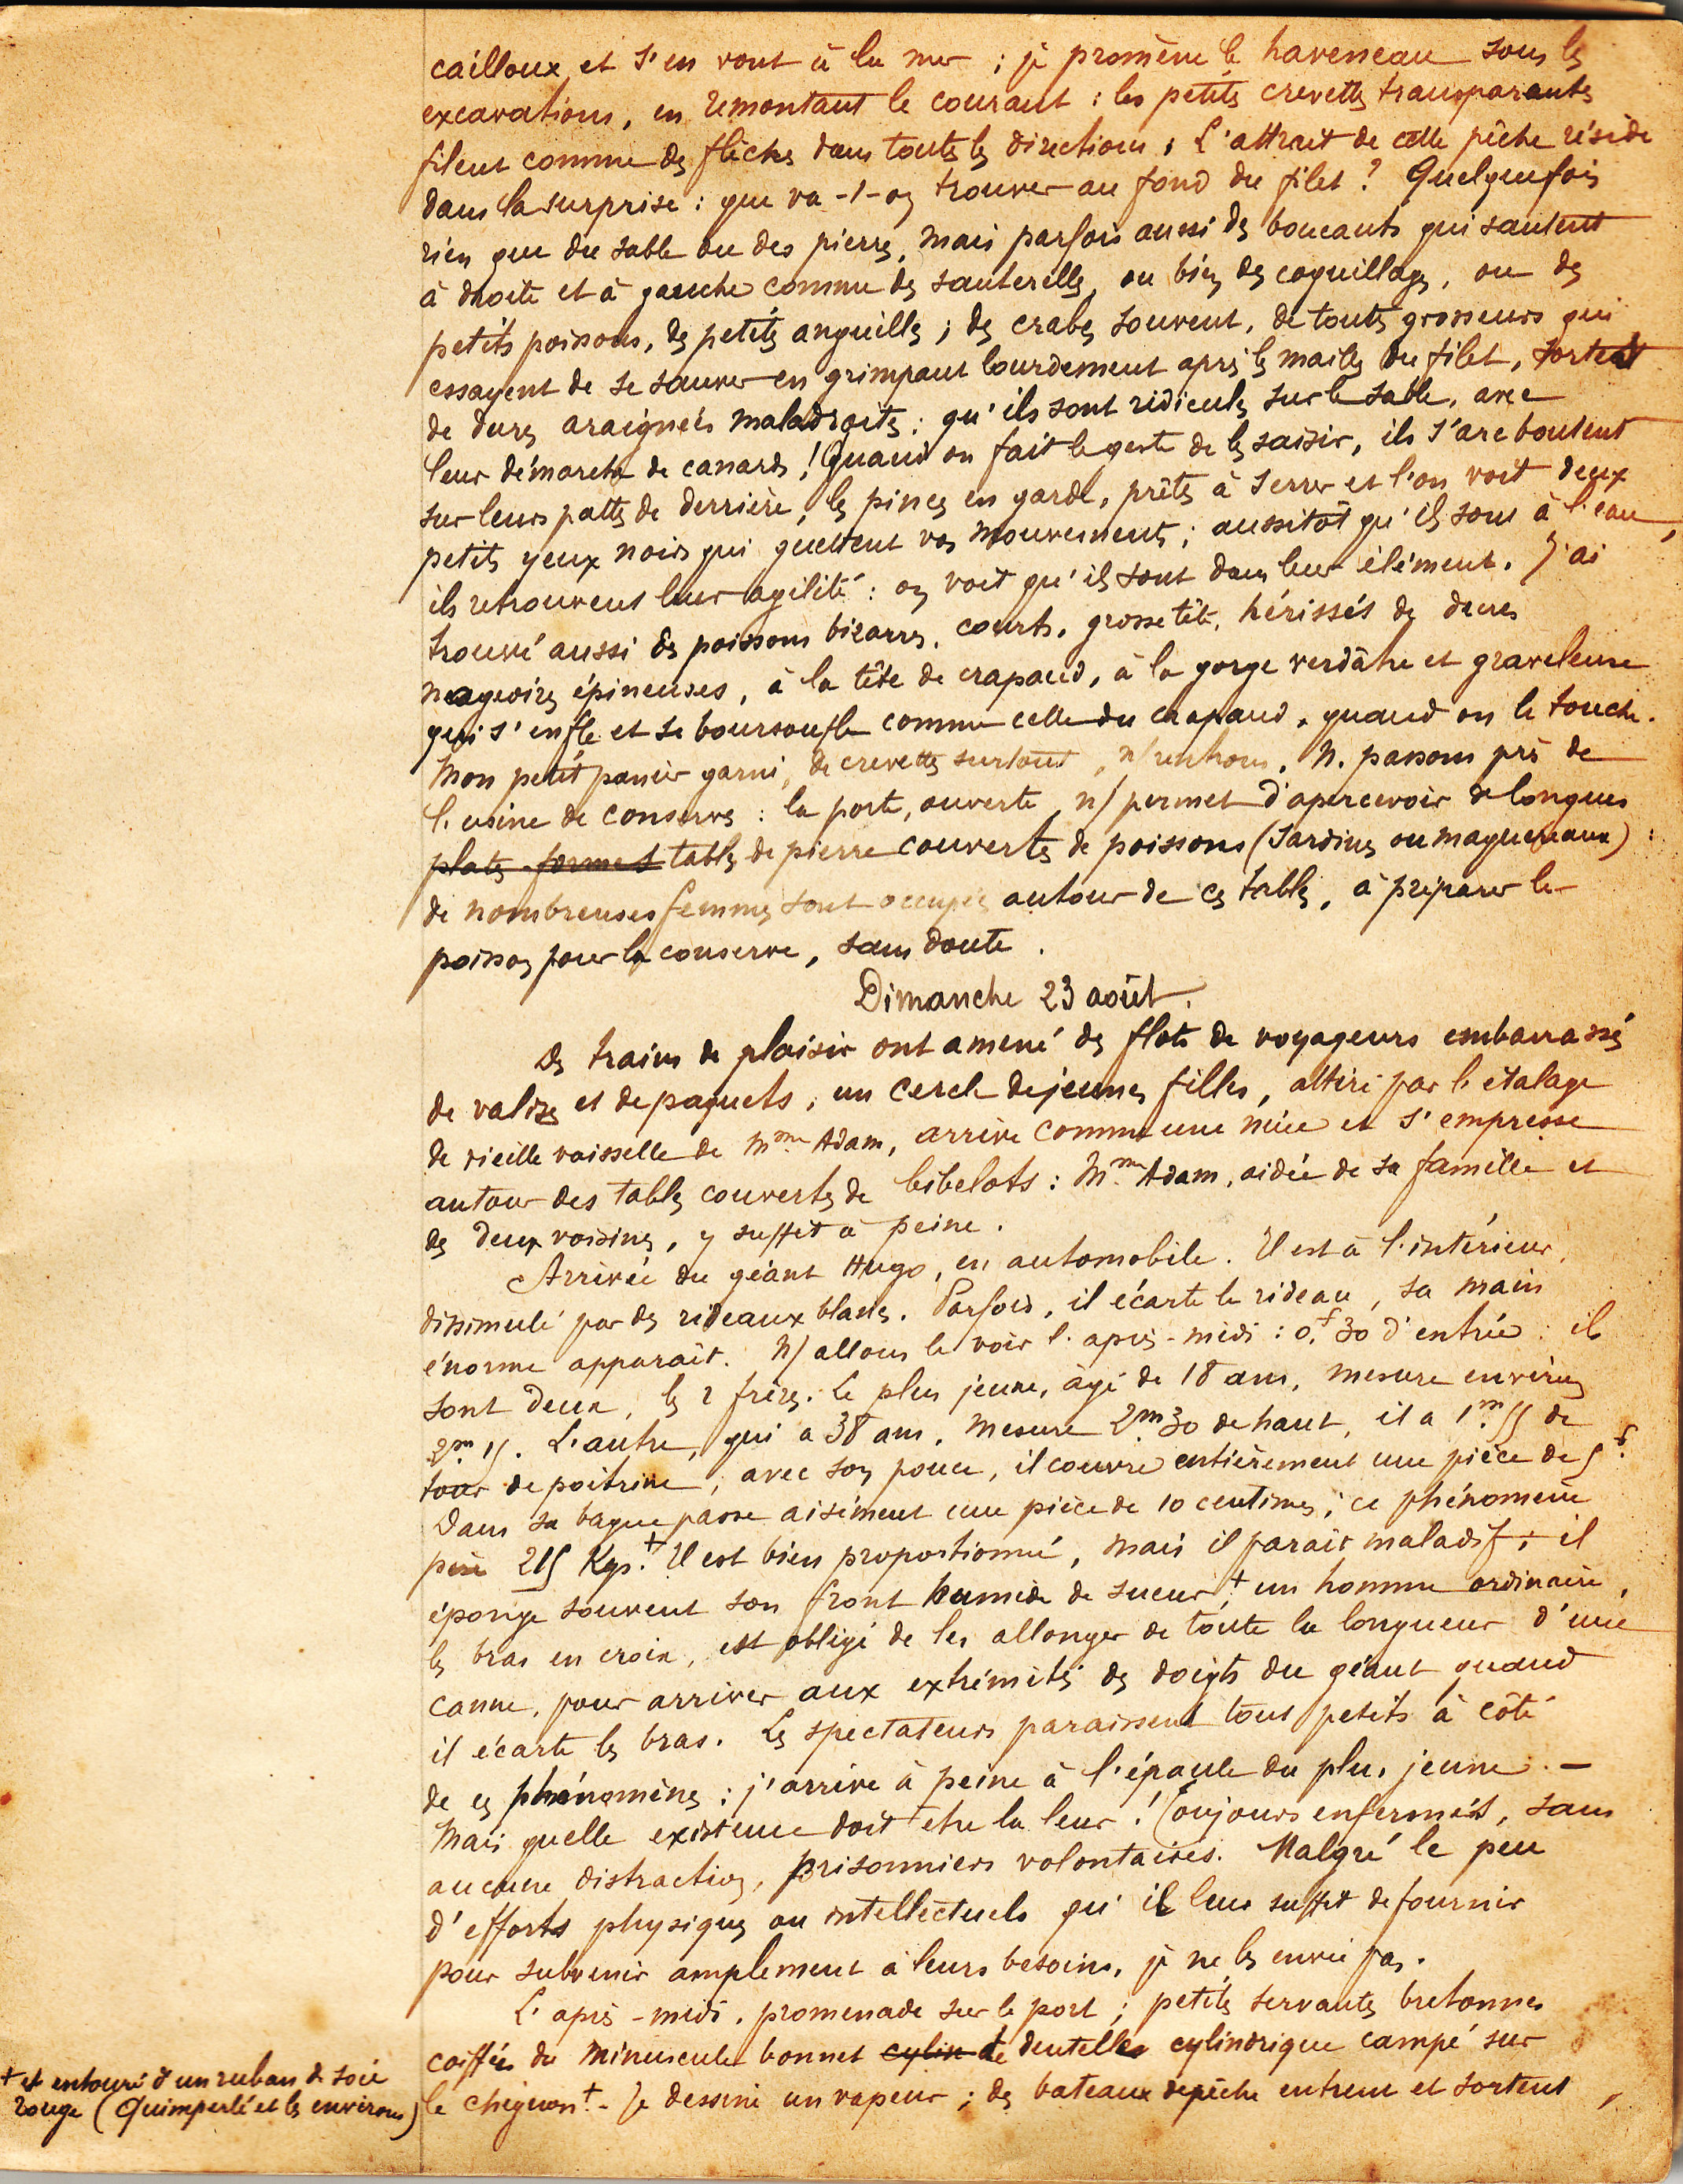 cailloux et s'en vont à la mer ; je promène le haveneau sous les
excavations, en remontant le courant : les petites crevettes transparentes
filent comme des flèches dans toutes les directions. L'attrait de cette pêche réside
dans la surprise : que va-t-on trouver au fond du filet ? Quelquefois
rien que du sable ou des pierres, mais parfois aussi des boucauts qui sautent
à droite et à gauche comme des sauterelles, ou bien des coquillages, ou des
petits poissons, des petites anguilles ; des crabes souvent, de toutes grosseurs qui
essayent de se sauver en grimpant lourdement après les mailles du filet, sortent
de dures araignées maladroites : qu'ils sont ridicules sur le sable, avec
leur démarche de canards ! Quand on fait le geste de les saisir, ils s'arcboutent
sur leurs pattes de derrière, les pinces en garde, prêtes à serrer et l'on voit deux
petits yeux noirs qui guettent vos mouvements ; aussitôt qu'ils sont à l'eau,
ils retrouvent leur agilité : on voit qu'ils sont dans leur élément. J'ai
trouvé aussi des poissons bizarres, courts, grosse tête, hérissés de dures
nageoires épineuses, à la tête de crapaud, à la gorge verdâtre et graveleuse
qui s'enfle et se boursoufle comme celle du crapaud, quand on le touche.
Mon petit panier garni, de crevettes surtout, n/ rentrons. N. passons près de
l'usine de conserves : la porte, ouverte, n/ permet d'apercevoir de longues
plates-formes tables de pierre couvertes de poissons (sardines ou maquereaux) :
de nombreuses femmes sont occupées autour de ces tables, à préparer le
poisson pour la conserve, sans doute.
Dimanche 23 août.
Des trains de plaisir ont amené des flots de voyageurs embarrassés
de valises et de paquets ; un cercle de jeunes filles, attiré par l'étalage
de vieille vaisselle de Mme Adam, arrive comme une nuée et s'empresse
autour des tables couvertes de bibelots : Mme Adam, aidée de sa famille et
des deux voisines, y suffit à peine.
Arrivée du géant Hugo, en automobile. Il est à l'intérieur,
dissimulé par des rideaux blancs. Parfois, il écarte le rideau, sa main
énorme apparaît. N/ allons le voir l'après-midi : 0f.30 d'entrée : ils
sont deux, les 2 frères. Le plus jeune, âgé de 18 ans, mesure environ
2m.15. L'autre, qui a 38 ans, mesure 2m.30 de haut, il a 1m.55 de
tour de poitrine ; avec son pouce, il couvre entièrement une pièce de 5f.
Dans sa bague passe aisément une pièce de 10 centimes ; ce phénomène
pèse 215 Kgs.+ Il est bien proportionné, mais il paraît maladif ; il
éponge souvent son front humide de sueur ;+ un homme ordinaire,
les bras en croix, est obligé de les allonger de toute la longueur d'une
canne, pour arriver aux extrémités des doigts du géant quand
il écarte les bras. Les spectateurs paraissent tout petits à côté
de ces phénomènes : j'arrive à peine à l'épaule du plus jeune. —
Mais quelle existence doit être la leur ! Toujours enfermés, sans
aucune distraction, prisonniers volontaires. Malgré le peu
d'efforts physiques ou intellectuels qu'il leur suffit de fournir
pour subvenir amplement à leurs besoins, je ne les envie pas.
L'après-midi, promenade sur le port ; petites servantes bretonnes
coiffées du minuscule bonnet cylin de dentelles cylindrique campé sur
le chignon+. - Je dessine un vapeur ; des bateaux de pêche entrent et sortent,
+ et entouré d'un ruban de soie
rouge (Quimperlé et les environs)